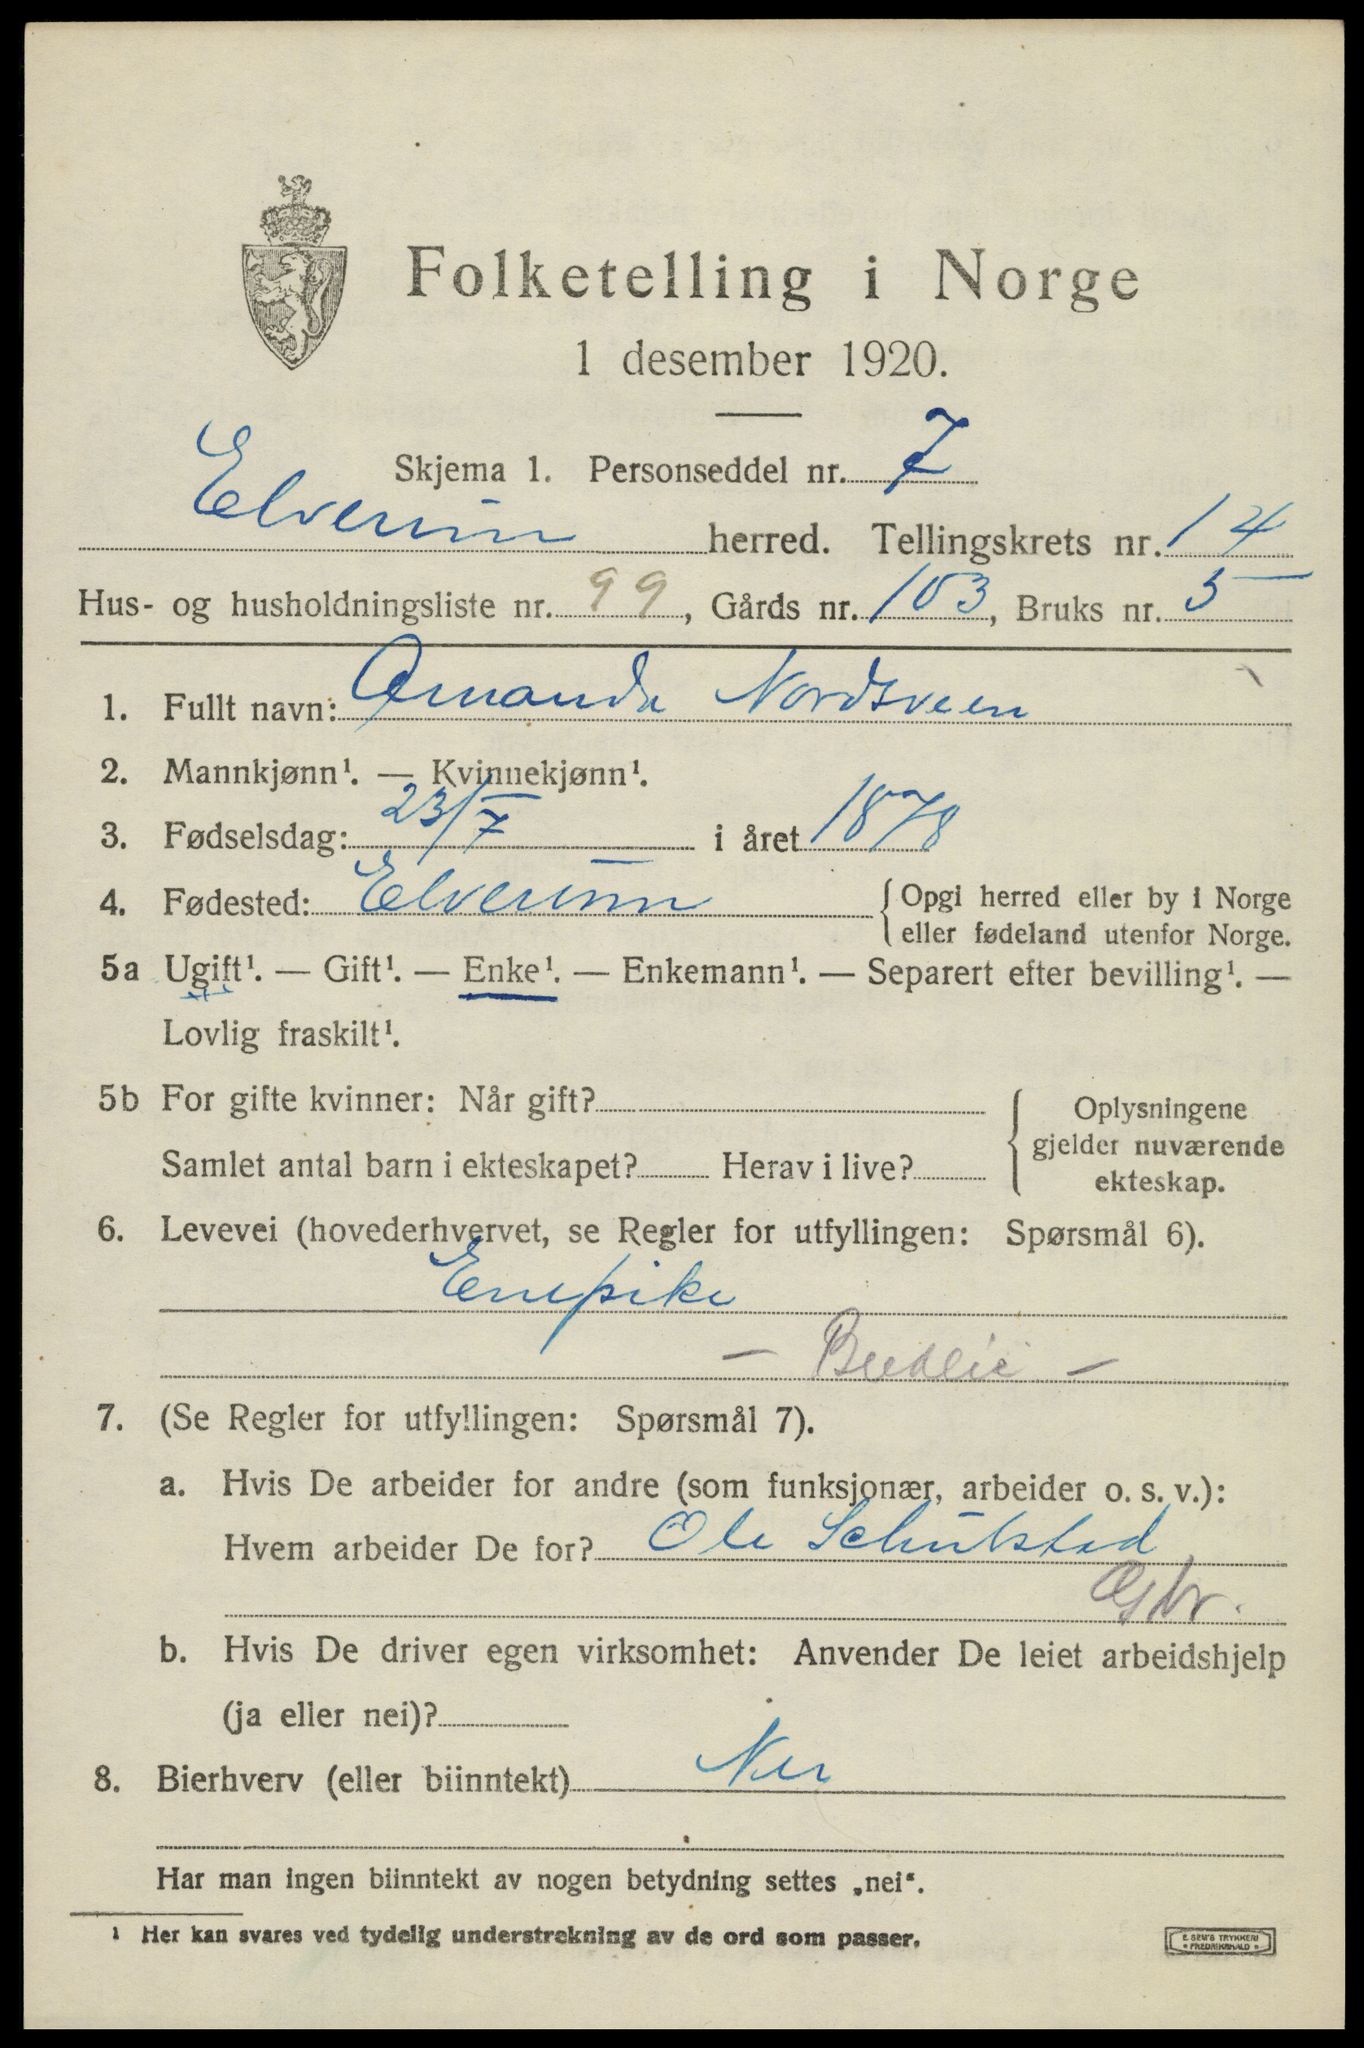 Folketelling i Norge
1 desember 1920.
Skjema 1. Personseddel nr. 7
Elverum herred. Tellingskrets nr. 14
Hus- og husholdningsliste nr. 99, Gårds nr. 103, Bruks nr. 5
1. Fullt navn: Amanda Nordsveen
2. Mannkjønn¹. — Kvinnekjønn¹.
3. Fødselsdag: 23/7 i året 1878
4. Fødested: Elverum { Opgi herred eller by i Norge
eller fødeland utenfor Norge.
5a Ugift¹. — Gift¹. — Enke¹. — Enkemann¹. — Separert efter bevilling¹. —
Lovlig fraskilt¹.
5b For gifte kvinner: Når gift? { Oplysningene
gjelder nuværende
Samlet antal barn i ekteskapet? Herav i live?
ekteskap.
6. Levevei (hovederhvervet, se Regler for utfyllingen: Spørsmål 6).
Enepike
— Budeie —
7. (Se Regler for utfyllingen: Spørsmål 7).
a. Hvis De arbeider for andre (som funksjonær, arbeider o. s. v.):
Hvem arbeider De for? Ole Schulstad
Gbr.
b. Hvis De driver egen virksomhet: Anvender De leiet arbeidshjelp
(ja eller nei)?
8. Bierhverv (eller biinntekt) Nei
Har man ingen biinntekt av nogen betydning settes „nei“.
¹ Her kan svares ved tydelig understrekning av de ord som passer.
E. SEM'S TRYKKERI
FREDRIKSHALD